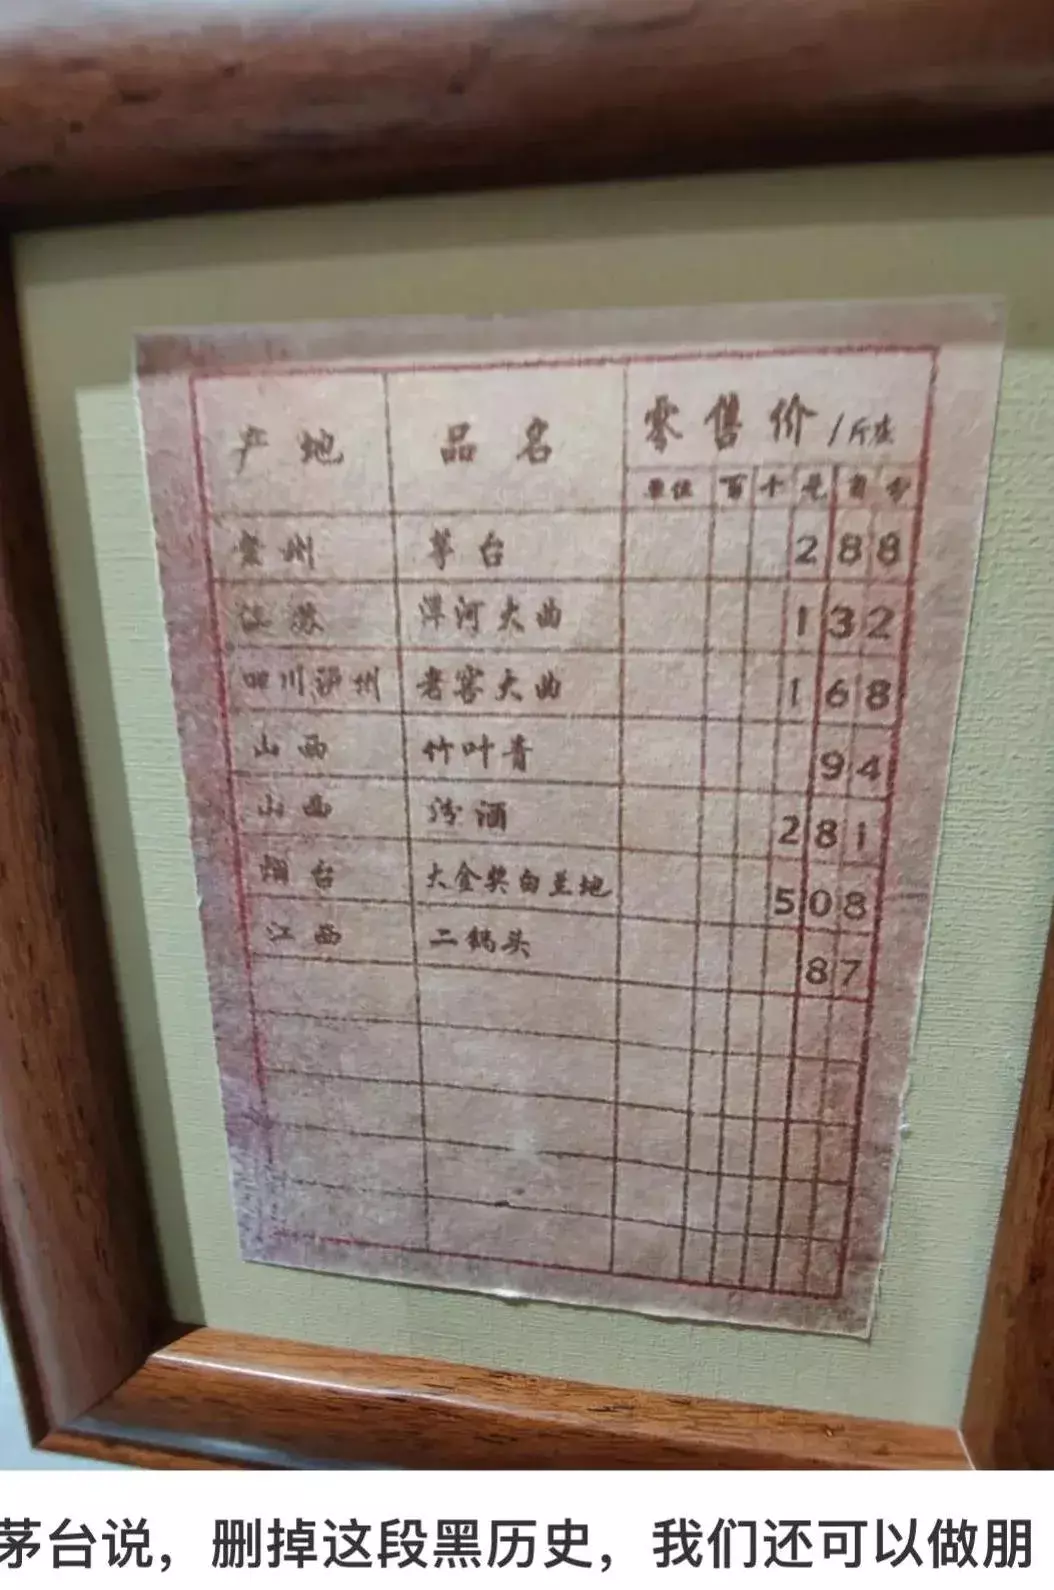 产地 品名 零售价/斤
单位 百 十 元 角 分
贵州 茅台 2 8 8
江苏 洋河大曲 1 3 2
四川泸州 老窖大曲 1 6 8
山西 竹叶青 9 4
山西 汾酒 2 8 1
烟台 大金奖白兰地 5 0 8
江西 二锅头 8 7
茅台说，删掉这段黑历史，我们还可以做朋